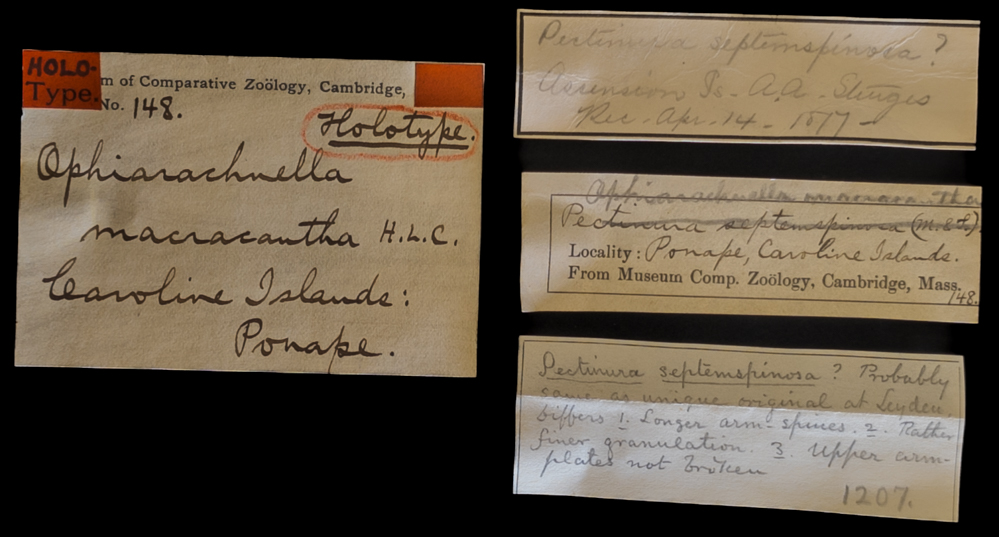 HOLO-
Type.
m of Comparative Zoölogy, Cambridge,
No. 148.
Holotype.
Ophiarachnella
macracantha H.L.C.
Caroline Islands:
Ponape.
Pectinura septemspinosa?
Ascension Is - A.A. Sturges
Rec. Apr. 14 - 1877 -
Ophiarachnella macracantha
Pectinura septemspinosa (M. & T.)
Locality: Ponape, Caroline Islands.
From Museum Comp. Zoölogy, Cambridge, Mass.
148.
Pectinura septemspinosa? Probably
same as unique original at Leyden.
Differs 1. Longer arm-spines. 2. Rather
finer granulation. 3. Upper arm-
plates not broken
1207.